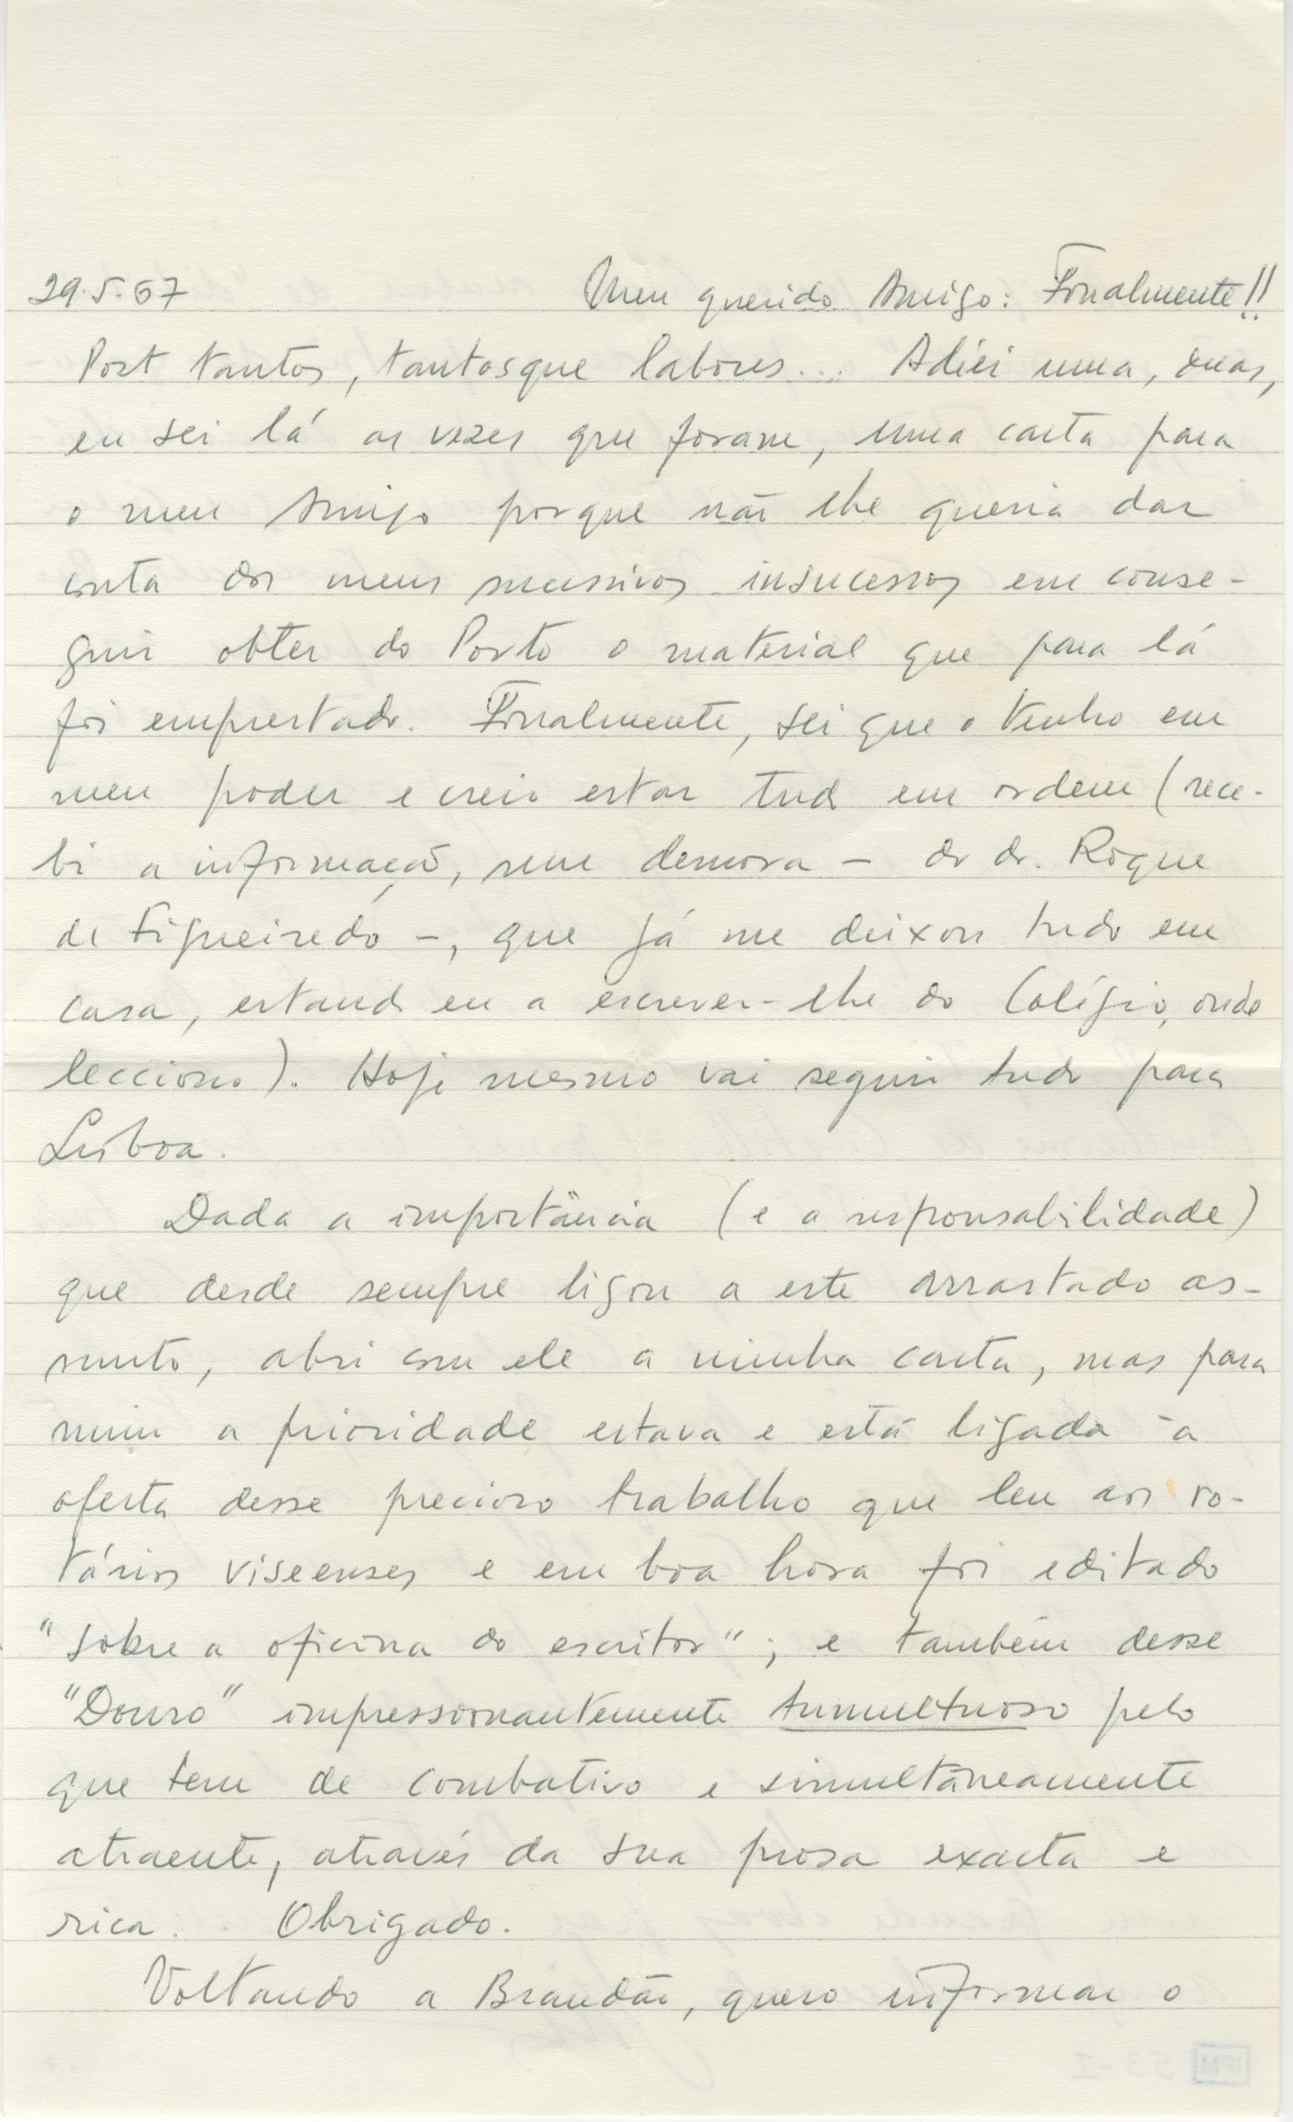 29.5.67 Meu querido Amigo: Finalmente!!
Post tantos, tantosque labores... Adiei uma, duas,
eu sei lá as vezes que foram, uma carta para
o meu Amigo porque não lhe queria dar
conta dos meus sucessivos insucessos em conse-
guir obter do Porto o material que para lá
foi emprestado. Finalmente, sei que o tenho em
meu poder e creio estar tudo em ordem (rece-
bi a informação, sem demora - do dr. Roque
de Figueiredo -, que já me deixou tudo em
casa, estando eu a escrever-lhe do Colégio, onde
lecciono). Hoje mesmo vai seguir tudo para
Lisboa.
Dada a importância (e a responsabilidade)
que desde sempre ligou a este arrastado as-
sunto, abri com ele a minha carta, mas para
mim a prioridade estava e está ligada à
oferta desse precioso trabalho que leu aos ro-
tários viseenses e em boa hora foi editado
"Sobre a oficina do escritor"; e também desse
"Douro" impressionantemente tumultuoso pelo
que tem de combativo e simultâneamente
atraente, através da sua prosa exacta e
rica. Obrigado.
Voltando a Brandão, quero informar o
53-I